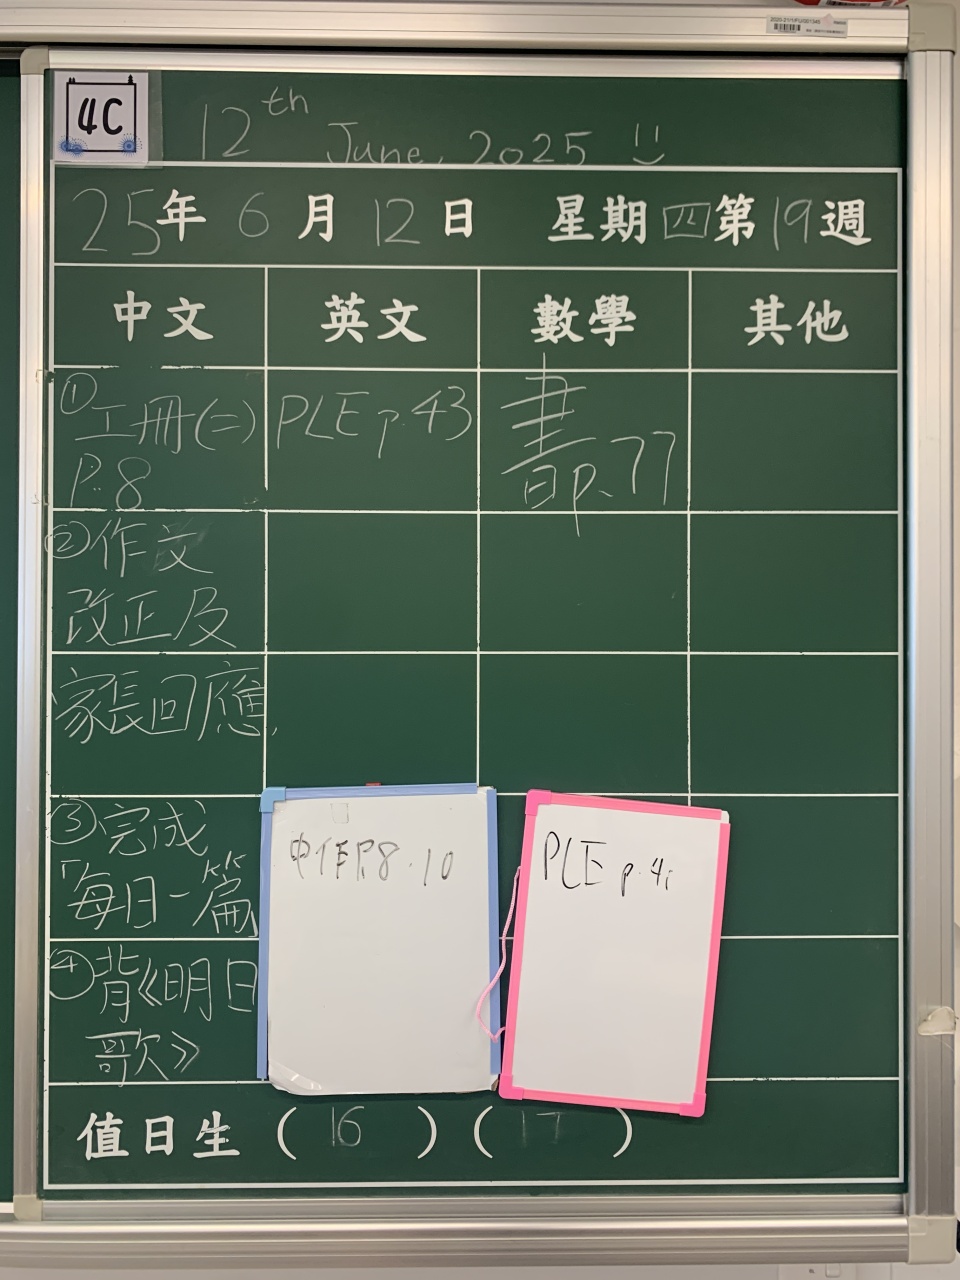 4C
12th June, 2025
25年 6月 12日 星期四 第19週
中文 英文 數學 其他
①工冊(二)
P.8
PLE p.43
書p.77
②作文
改正及
家長回應,
③完成
「每日一篇
④背《明日
歌》
中作P.8.10
PLE p.
值日生 (16) (17)